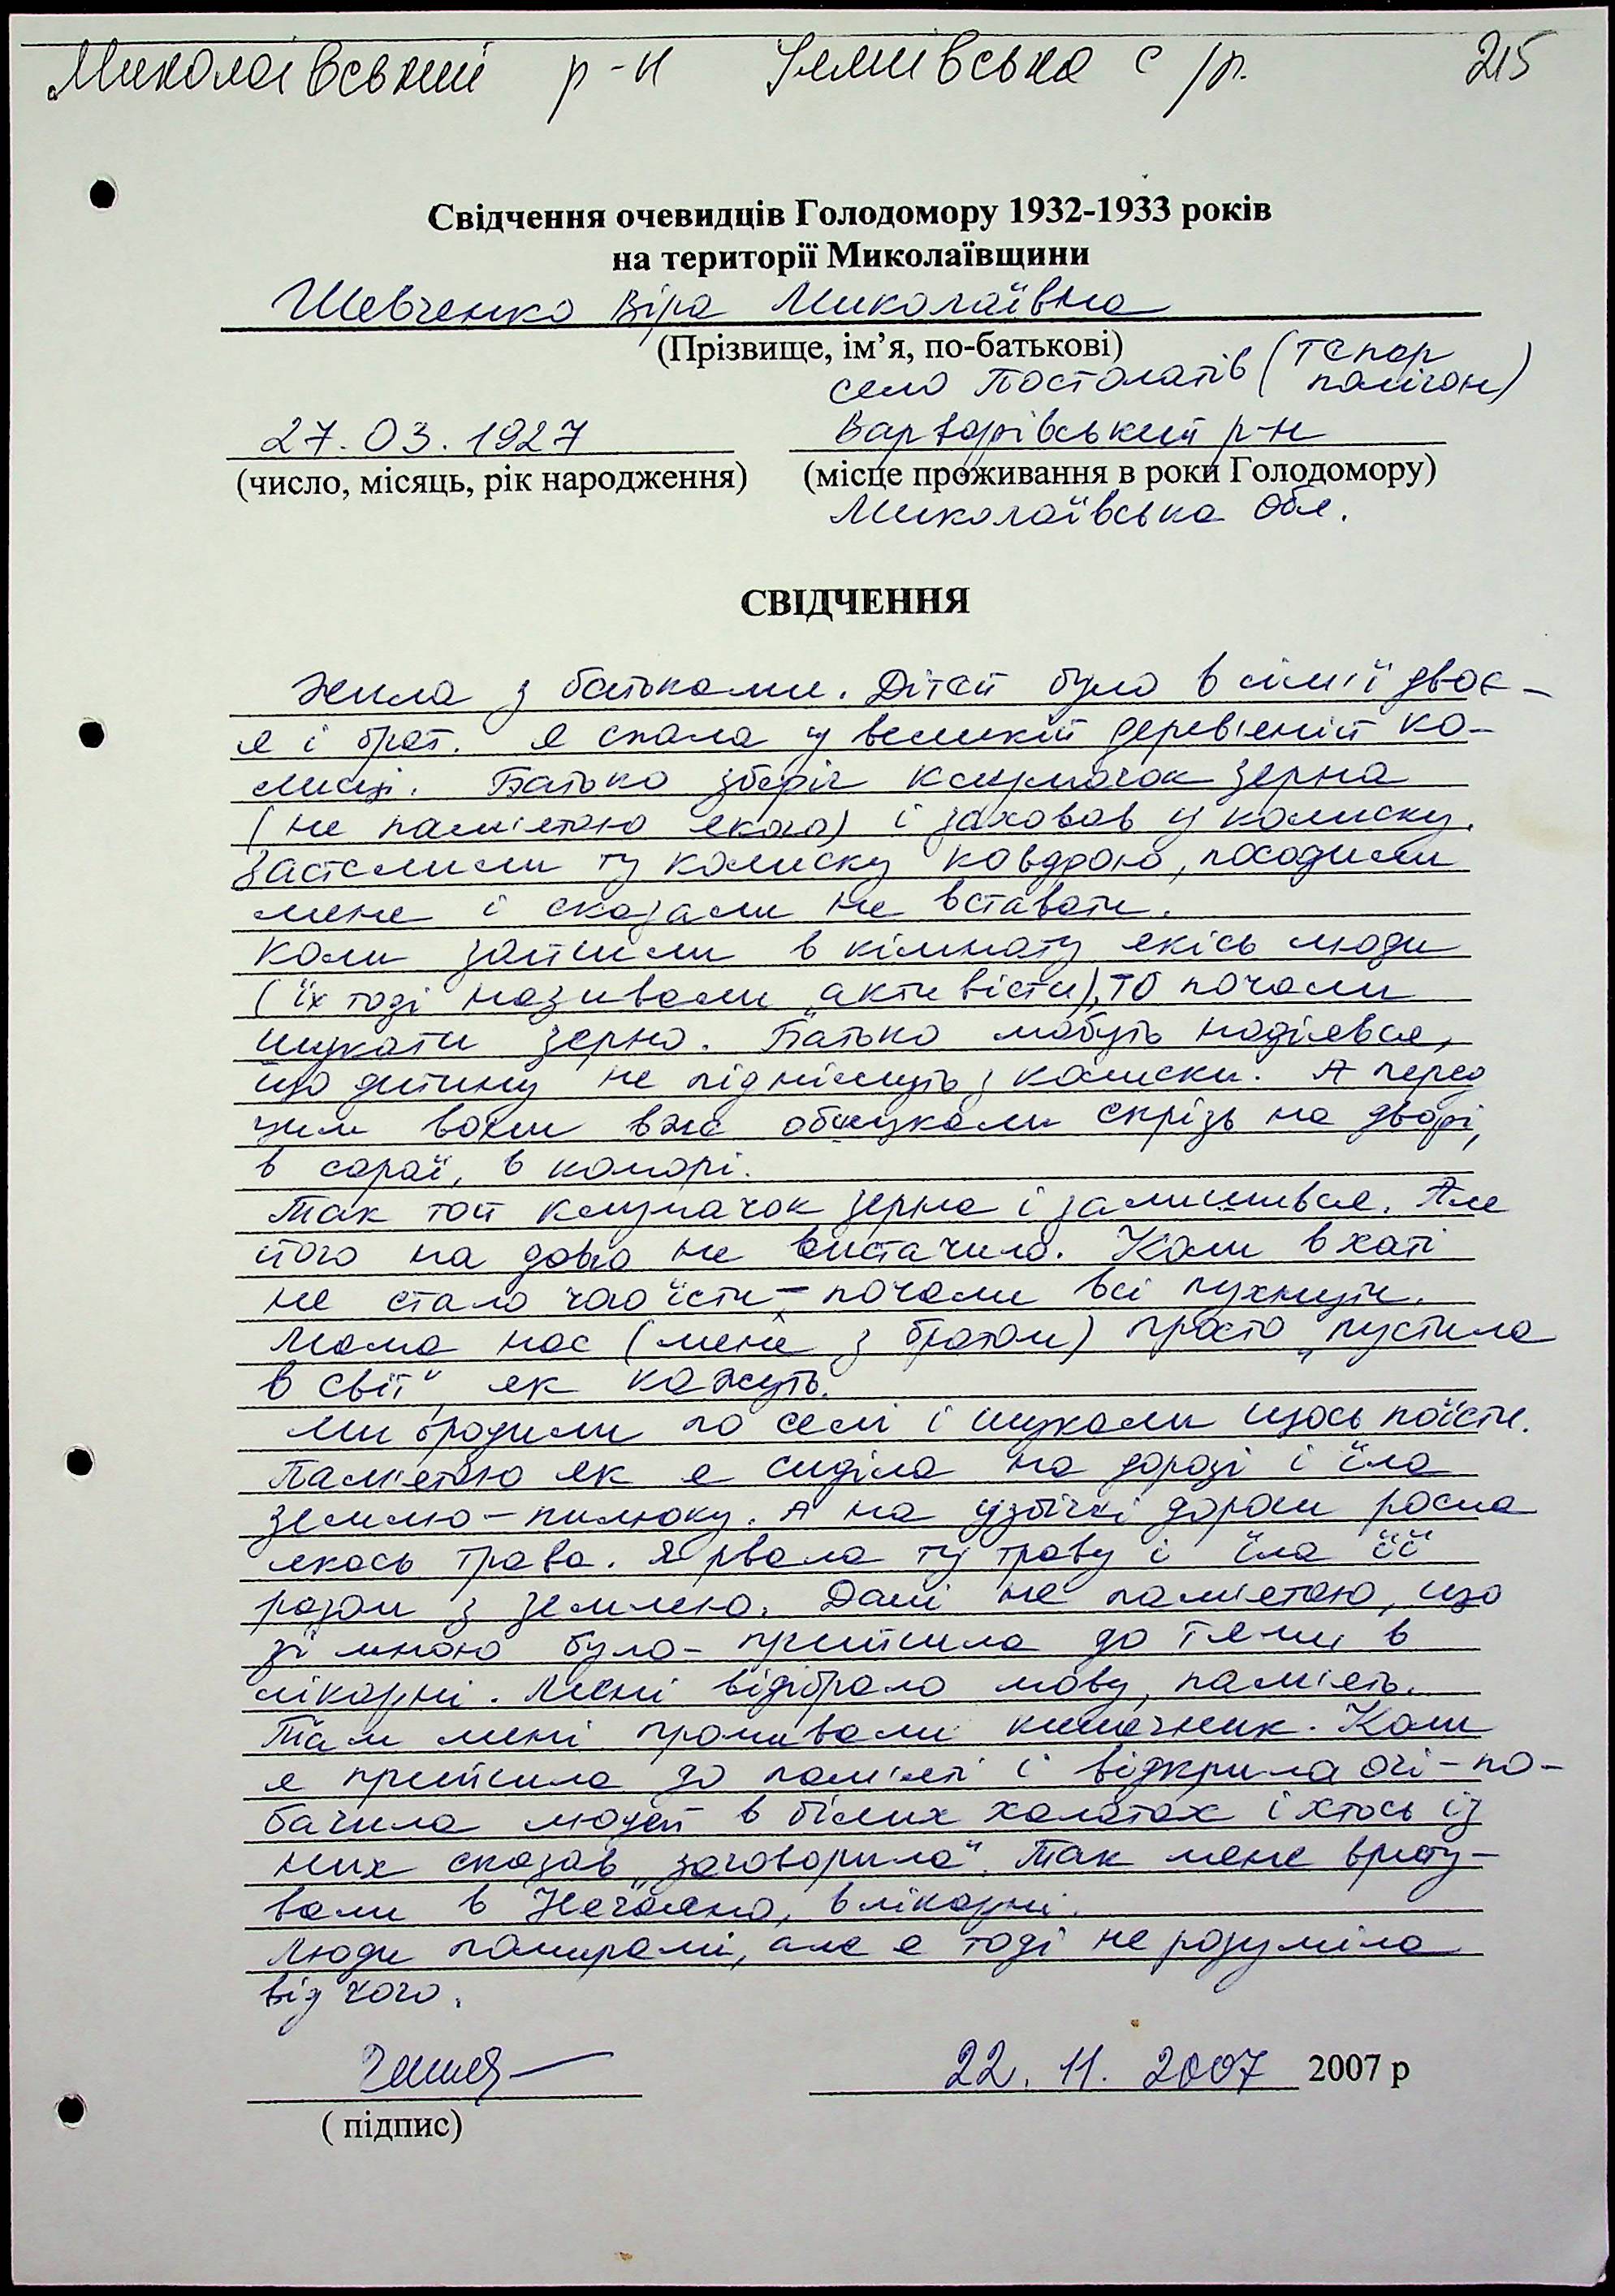 Миколаївський р-н Улянівська с/р. 215
Свідчення очевидців Голодомору 1932-1933 років
на території Миколаївщини
Шевченко Віра Миколаївна
(Прізвище, ім’я, по-батькові)
село Постолатів (тепер полігон)
27.03.1927 Варварівський р-н
(число, місяць, рік народження) (місце проживання в роки Голодомору)
Миколаївська обл.
СВІДЧЕННЯ
Жила з батьками. Дітей було в сім'ї двоє –
я і брат. Я спала у великій дерев'яній ко-
лисці. Батько зберіг клумачок зерна
(не пам'ятаю якого) і заховав у колиску.
Застелили ту колиску ковдрою, посадили
мене і сказали не вставати.
Коли зайшли в кімнату якісь люди
(їх тоді називали „активісти), то почали
шукати зерно. Батько мабуть надіявся,
що дитину не піднімуть з колиски. А перед
цим вони вже обшукали скрізь на дворі,
в сараї, в коморі.
Так той клумачок зерна і залишився. Але
його на довго не вистачило. Коли в хаті
не стало чого їсти – почали всі пухнути.
Мама нас (мене з братом) просто „пустила
в світ“, як кажуть.
Ми бродили по селі і шукали щось поїсти.
Пам'ятаю як я сиділа на дорозі і їла
землю – пилюку. А на узбіччі дороги росла
якась трава. Я рвала ту траву і їла її
разом з землею. Далі не пам'ятаю, що
зі мною було – прийшла до тями в
лікарні. Мені відібрало мову, пам'ять.
Там мені промивали кишечник. Коли
я прийшла до пам'яті і відкрила очі – по-
бачила людей в білих халатах і хтось із
них сказав „заговорила“. Так мене вряту-
вали в Нечаяно, в лікарні.
Люди помирали, але я тоді не розуміла
від чого.
22.11.2007 2007 р
( підпис)